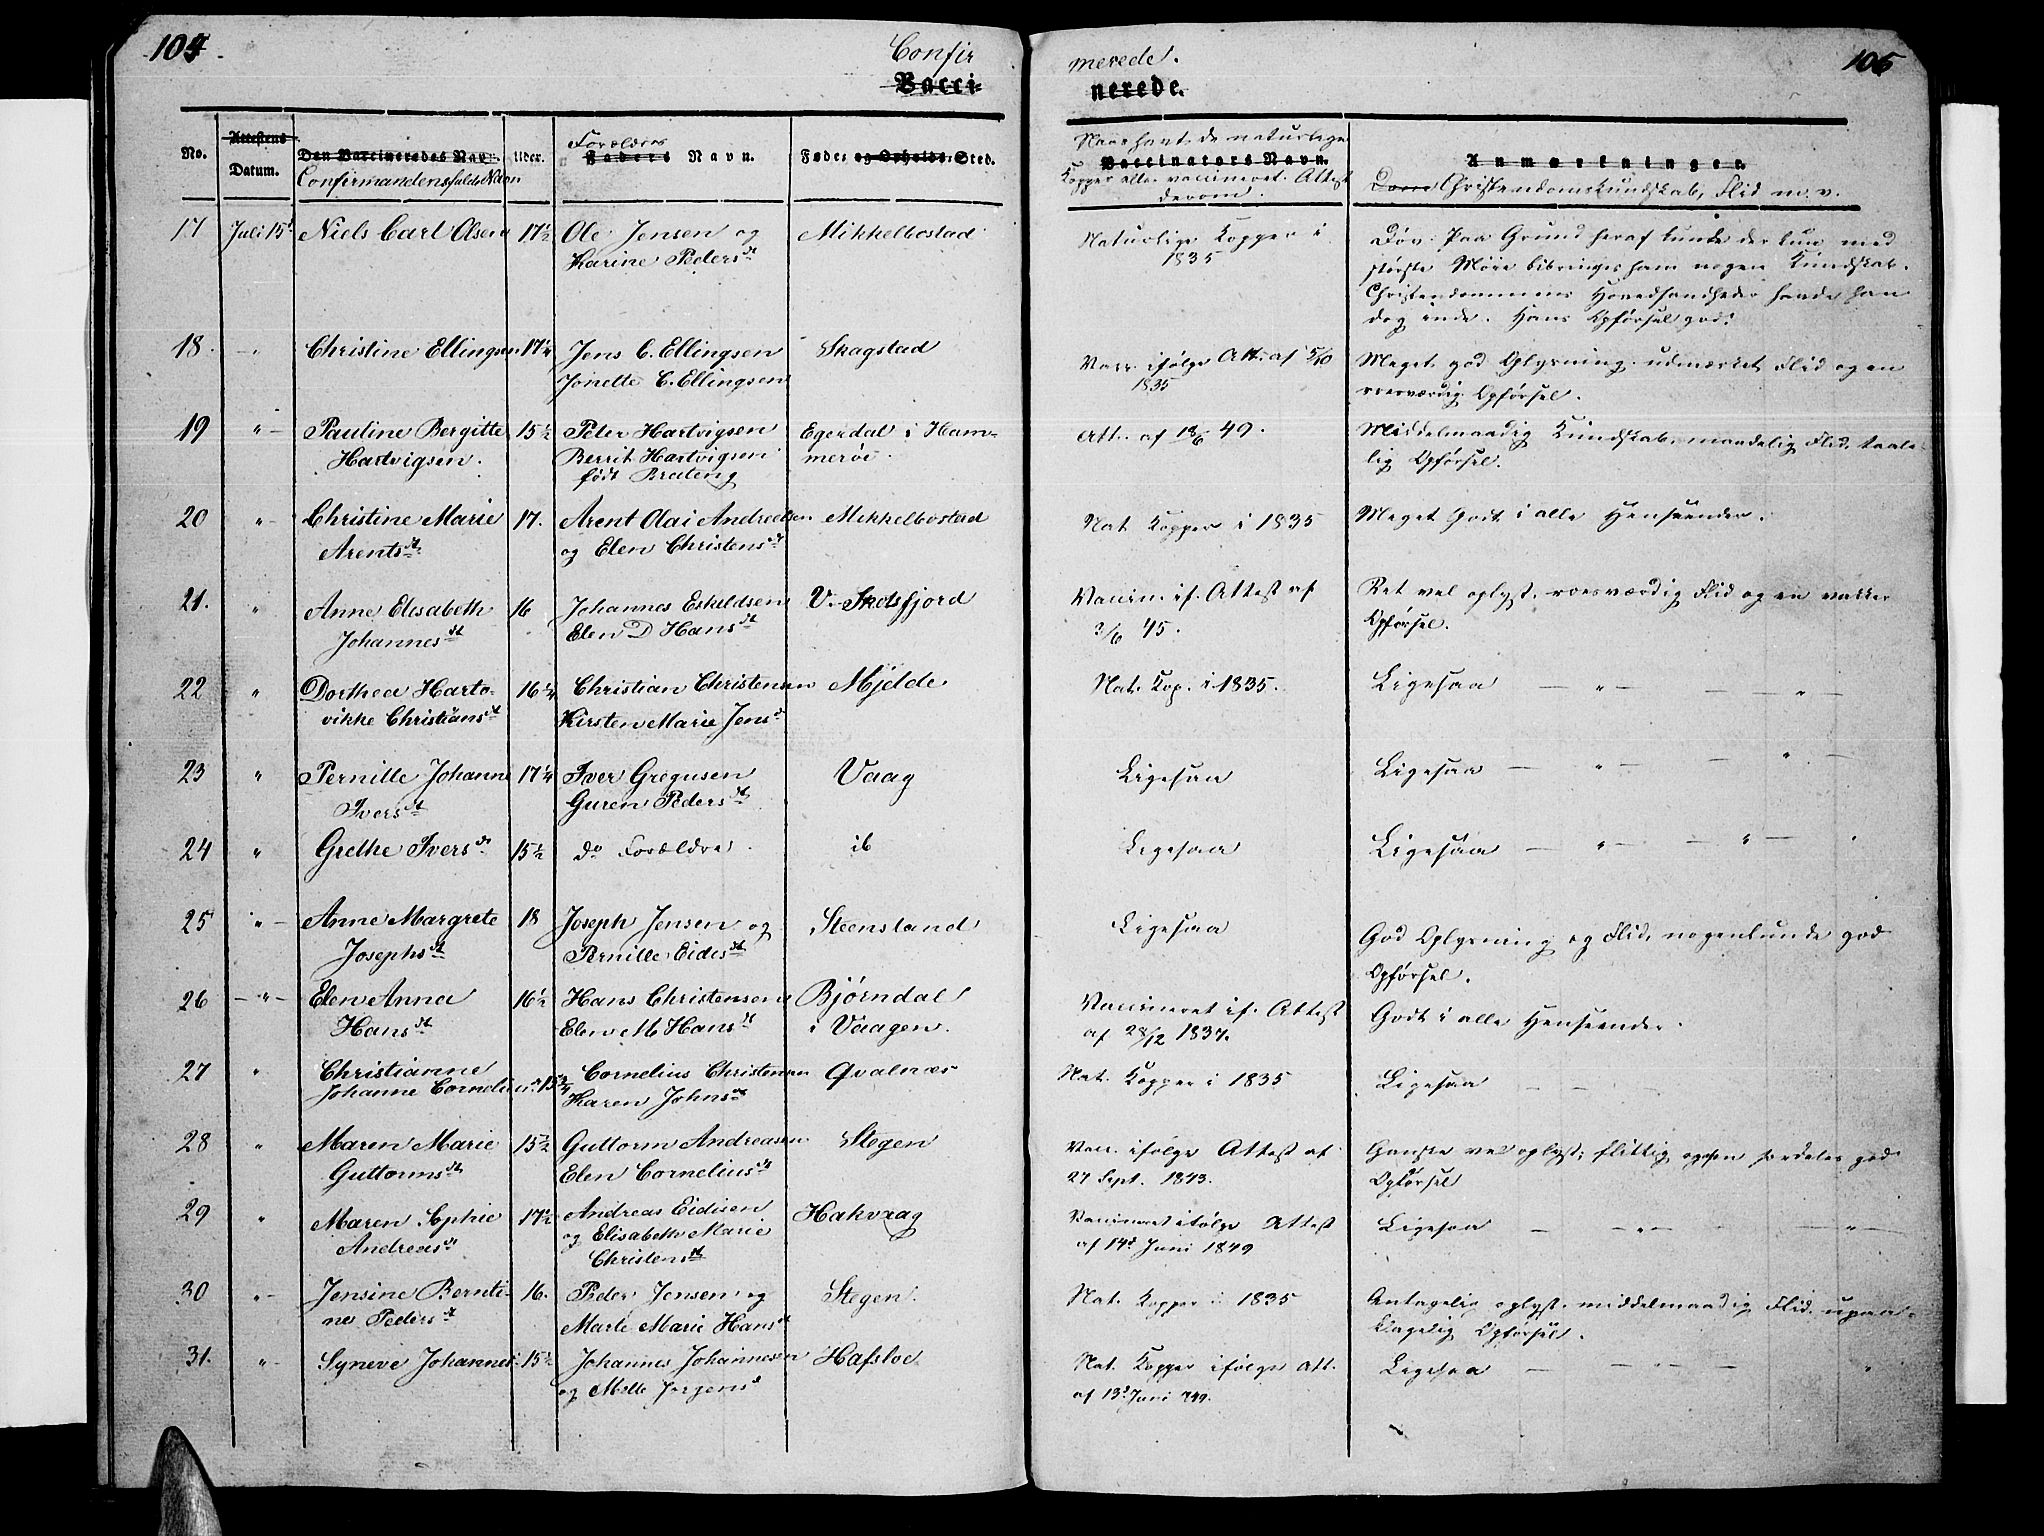 104.
Confir
Vacci=
merede.
nerede.
106
No.
Attestens Datum.
Den Vaccineredes Navn.
Confirmandens fulde Navn
Alder.
Forældres
Faders Navn.
Føde= og Opholds=Sted.
Naar havt de naturlige
Vaccinators Navn.
Kopper eller vaccineret. Attest
derom.
Anmærkninger.
Christendomskundskab, Flid m. v.
17 Juli 15d Niels Carl Olsen 17½ Ole Jensen og Mikkelbostad Naturlige Kopper i Døv. Paa Grund heraf kunde der kun med
Karine Pedersdt 1835 største Møie bibringes ham nogen Kundskab.
Christendommens Hovedsandheder havde han
dog inde. Hans Opførsel god.
18. - " Christine Ellingsen 17¼ Jens C. Ellingsen Skagstad Vacc. ifølge Att. af 5/10 Meget god Oplysning, udmærket Flid og en
Jonette C. Ellingsen 1835 roesværdig Opførsel.
19 " - Pauline Bergitte 15½ Peter Hartvigsen Egerdal i Ham= Att. af 18/6 49. Middelmaadig Kundskab, maadelig Flid, taale=
Hartvigsen. Berrit Hartvigsen merøe. lig Opførsel.
født Brateng
20 " - Christine Marie 17. Arent Olai Andreassen Mikkelbostad Nat. Kopper i 1835 Meget Godt i alle Henseender.
Arentsdt og Elen Christensdt
21. " Anne Elisabeth 16 Johannes Eskildsen V. Skotsfjord Vaccin. if. Attest af Ret vel oplyst, roesværdig Flid og en vakker
Johannesdt Elen D Hansdt 3/6 45. Opførsel.
22 " Dorthea Harto= 16¼ Christian Christensen Mjelde Nat. Kop. i 1835. Ligesaa — " — — " —
vikke Christiansdt Kirsten Marie Jensd
23 " Pernille Johanne 17¼ Iver Gregusen Vaag Ligesaa Ligesaa — " — — " —
Iversdt Guren Pedersdt
24 " Grethe Iversdt 15½ do Forældre. ib Ligesaa Ligesaa — " — — " —
25 " - Anne Margrete 18 Joseph Jensen og Steensland Ligesaa God Oplysning og Flid, nogenlunde god
Josephsdt Pernille Eidisdt Opførsel.
26 - " - Elen Anna 16½ Hans Christensen Bjørndal Vaccineret if. Attest Godt i alle Henseender.
Hansdt Elen M Hansdt i Vaagen. af 28/12 1837.
27 " Christianne Cornelius Christensen Qvalnæs Nat. Kopper i 1835 Ligesaa — —
Johanne Cornelius 15¾ Karen Johnsdt
28 " Maren Marie 15½ Guttorm Andreasen Stegen Vacc. ifølge Attest af Ganske vel oplyst; flittig og særdeles god
Guttormsdt Elen Corneliusdt 27 Sept. 1843. Opførsel
29 " Maren Sophie 17½ Andreas Eidisen Hakvaag Vaccineret ifølge Attest Ligesaa — " — — " —
Andreasdt og Elisabeth Marie af 14d Juni 1849
Christensdt
30 " - Jensine Bernti= 16. Peder Jensen og Stegen. Nat. Kopper i 1835 Antagelig oplyst, middelmaadig Flid, upaa=
ne Pedersdt Marte Marie Hansdt klagelig Opførsel.
31. " - Syneve Johannes 15½ Johannes Johannesen Hafsloe Nat. Kopper ifølge Att. Ligesaa — " — "
og Mette Jørgensd af 13d Juni 49.